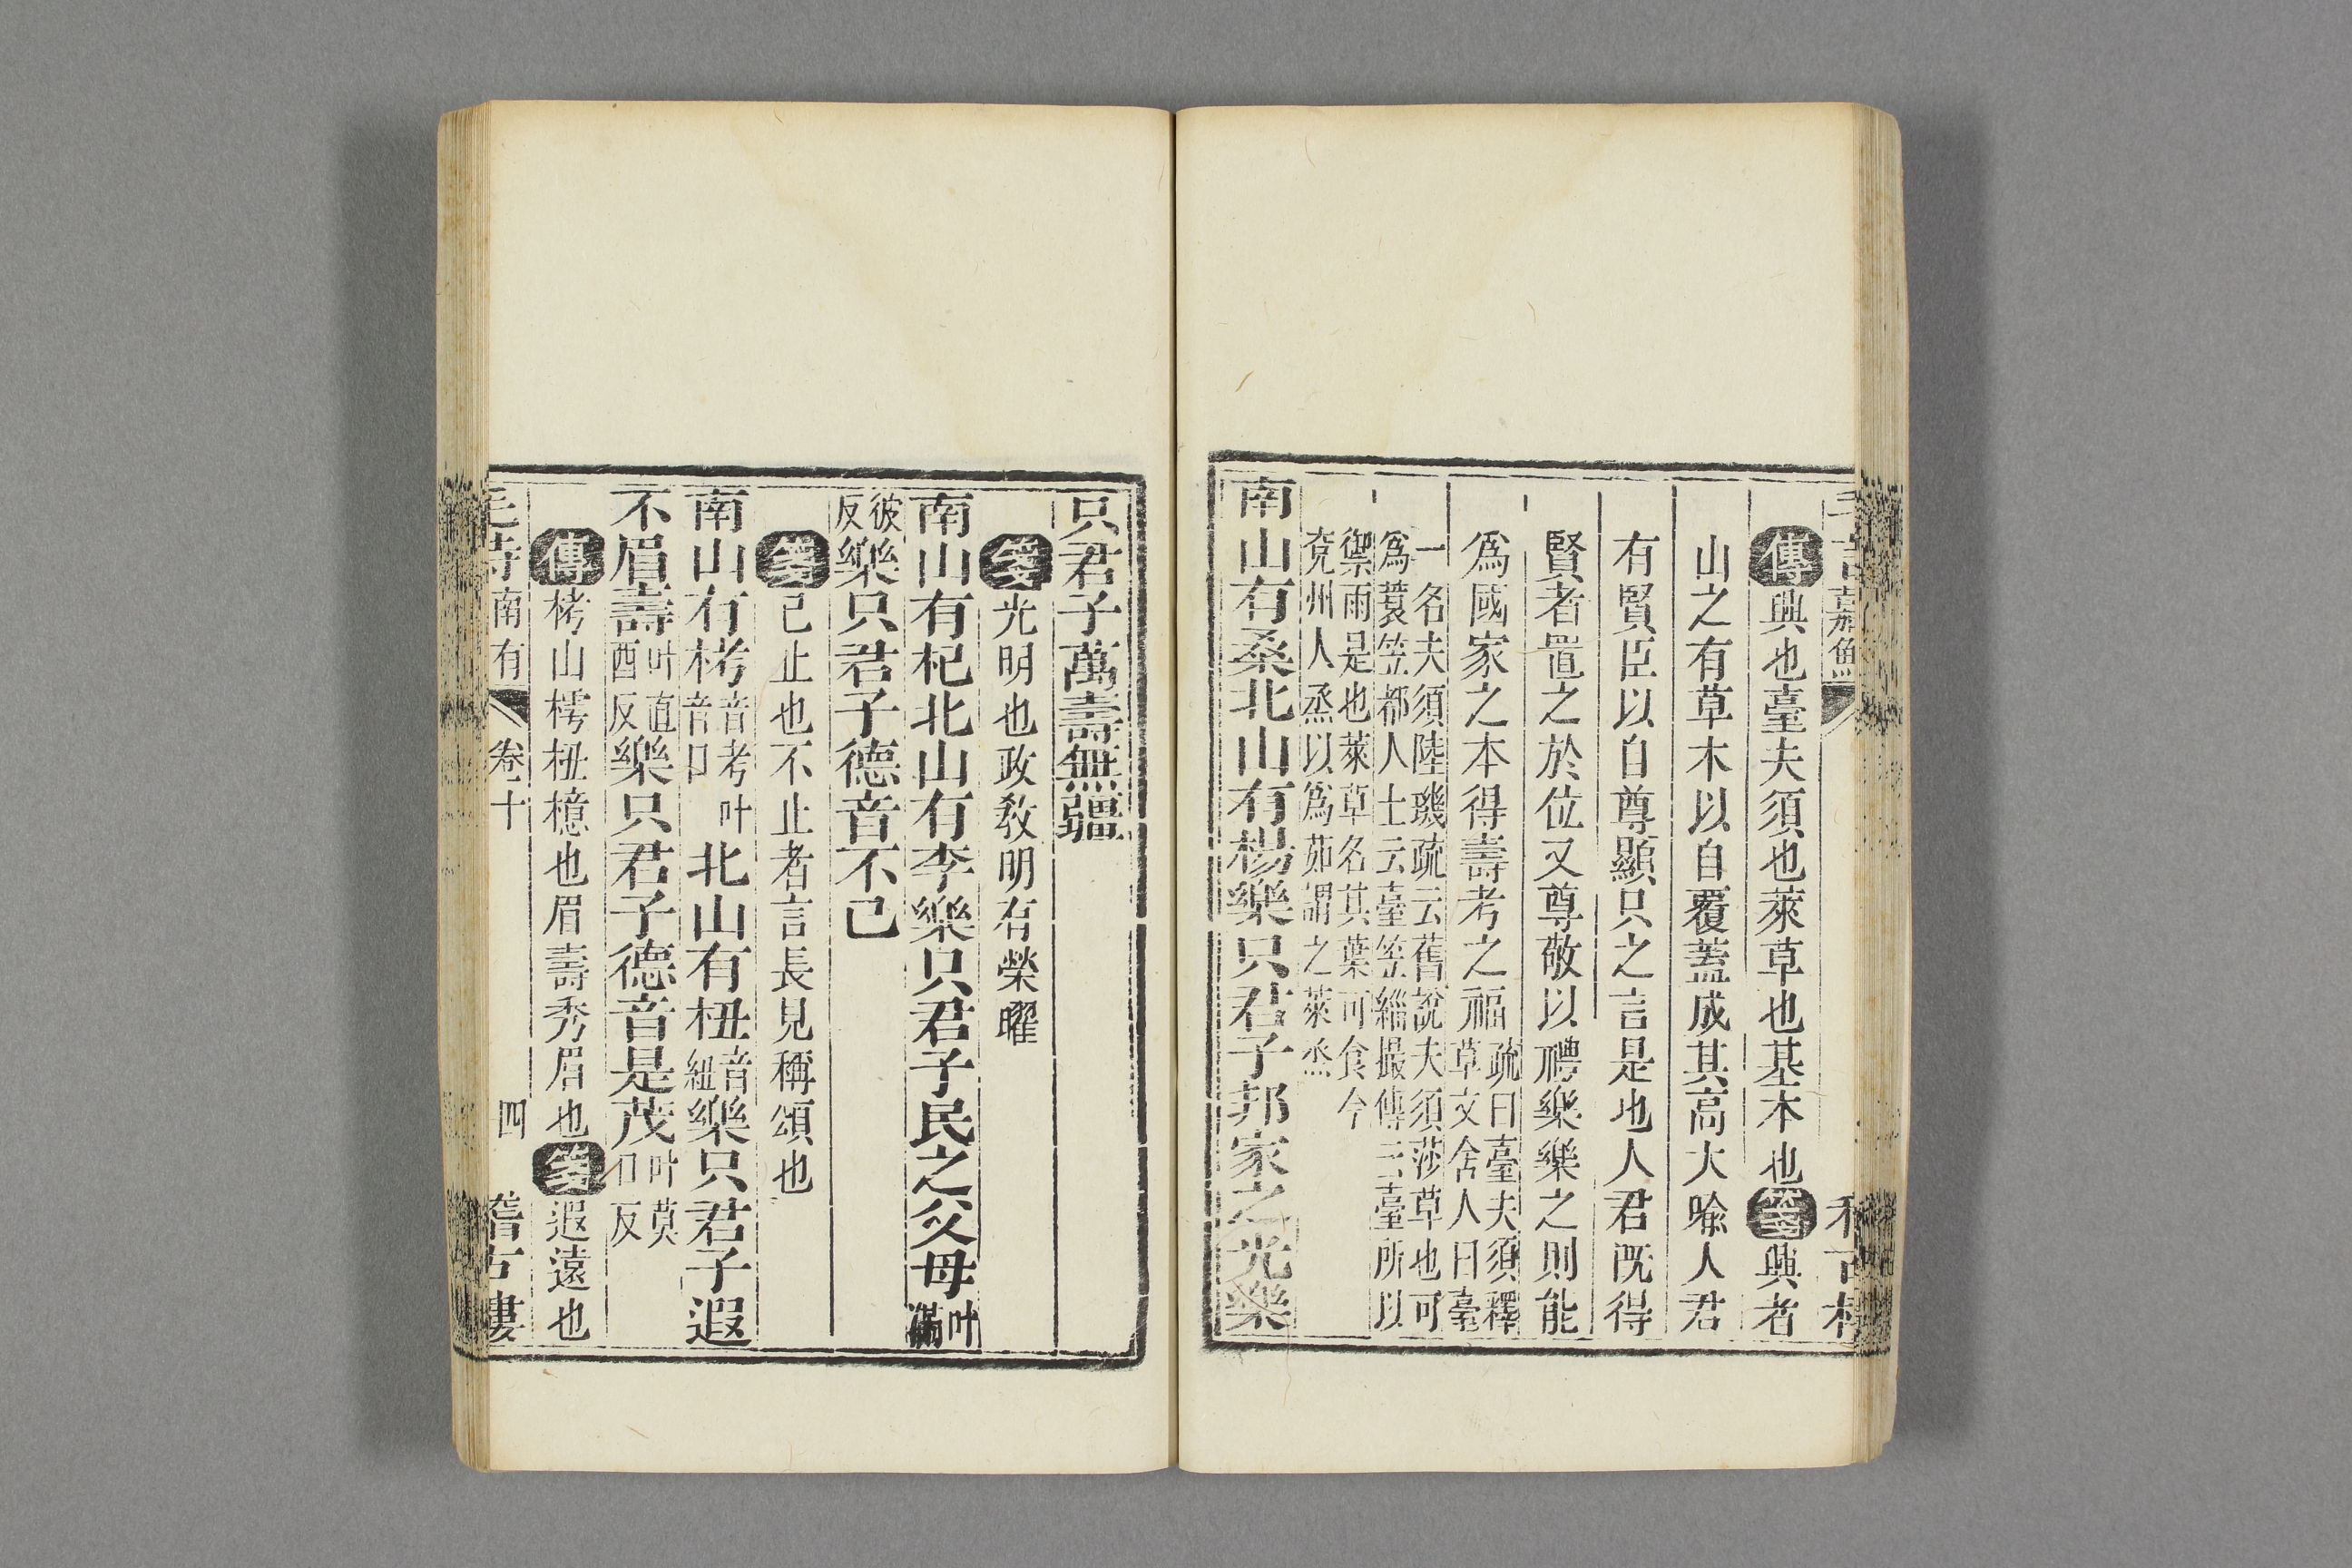 嘉魚
傳興也臺夫須也萊草也基本也箋興者
山之有草木以自覆蓋成其高大喻人君
有賢臣以自尊顯只之言是也人君既得
賢者置之於位又尊敬以禮樂樂之則能
爲國家之本得壽考之福疏曰臺夫須釋
草文舍人曰臺
一名夫須陸璣疏云舊說夫須莎草也可
爲蓑笠都人士云臺笠緇撮傳云臺所以
禦雨是也萊草名其葉可食今
兗州人烝以爲茹謂之萊烝
南山有桑北山有楊樂只君子邦家之光樂
只君子萬壽無疆
箋光明也政教明有榮曜
南山有杞北山有李樂只君子民之父母叶滿
彼反樂只君子德音不已
箋已止也不止者言長見稱頌也
南山有栲音考叶音口北山有杻音紐樂只君子遐
不眉壽叶直酉反樂只君子德音是茂叶莫口反
傳栲山樗杻檍也眉壽秀眉也箋遐遠也
毛詩南有 卷十 四 稽古樓